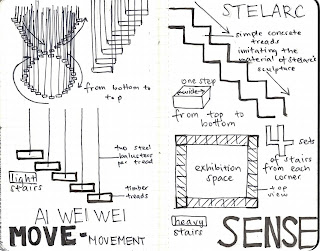 from bottom to
top
two steel
balusters
per tread
light
stairs
timber
treads
AI WEI WEI
MOVE - MOVEMENT
STELARC
simple concrete
treads
imitating the
material of stelarc's
sculpture
one step
wide
from top to
bottom
4 sets
of stairs
from each
corner
exhibition
space
top
view
heavy
stairs
SENSE